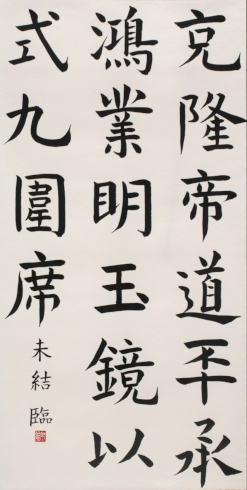 克隆帝道丕承
鴻業明玉鏡以
式九圍席
未結臨